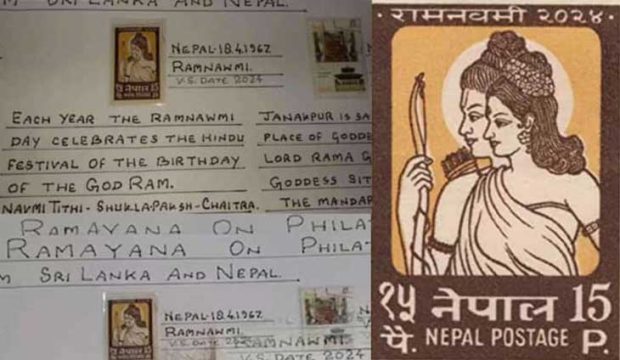 M SRI LANKA AND NEPAL.
NEPAL-18.4.1967
RAMNAWMI.
V.S. DATE 2024
१५ नेपाल 15
EACH YEAR THE RAMNAWMI
DAY CELEBRATES THE HINDU
FESTIVAL OF THE BIRTHDAY
OF THE GOD RAM.
NAVMI TITHI - SHUKLA-PAKSH-CHAITRA.
JANAKPUR IS SA
PLACE OF GODDE
LORD RAMA G
GODDESS SIT
THE MANDAP
RAMAYANA ON PHILAT
RAMAYANA ON PHILA
M SRI LANKA AND NEPAL.
NEPAL-18.4.1967
RAMNAWMI.
V.S. DATE 2024
रामनवमी २०२४.
१५ नेपाल 15
पै. NEPAL POSTAGE P.